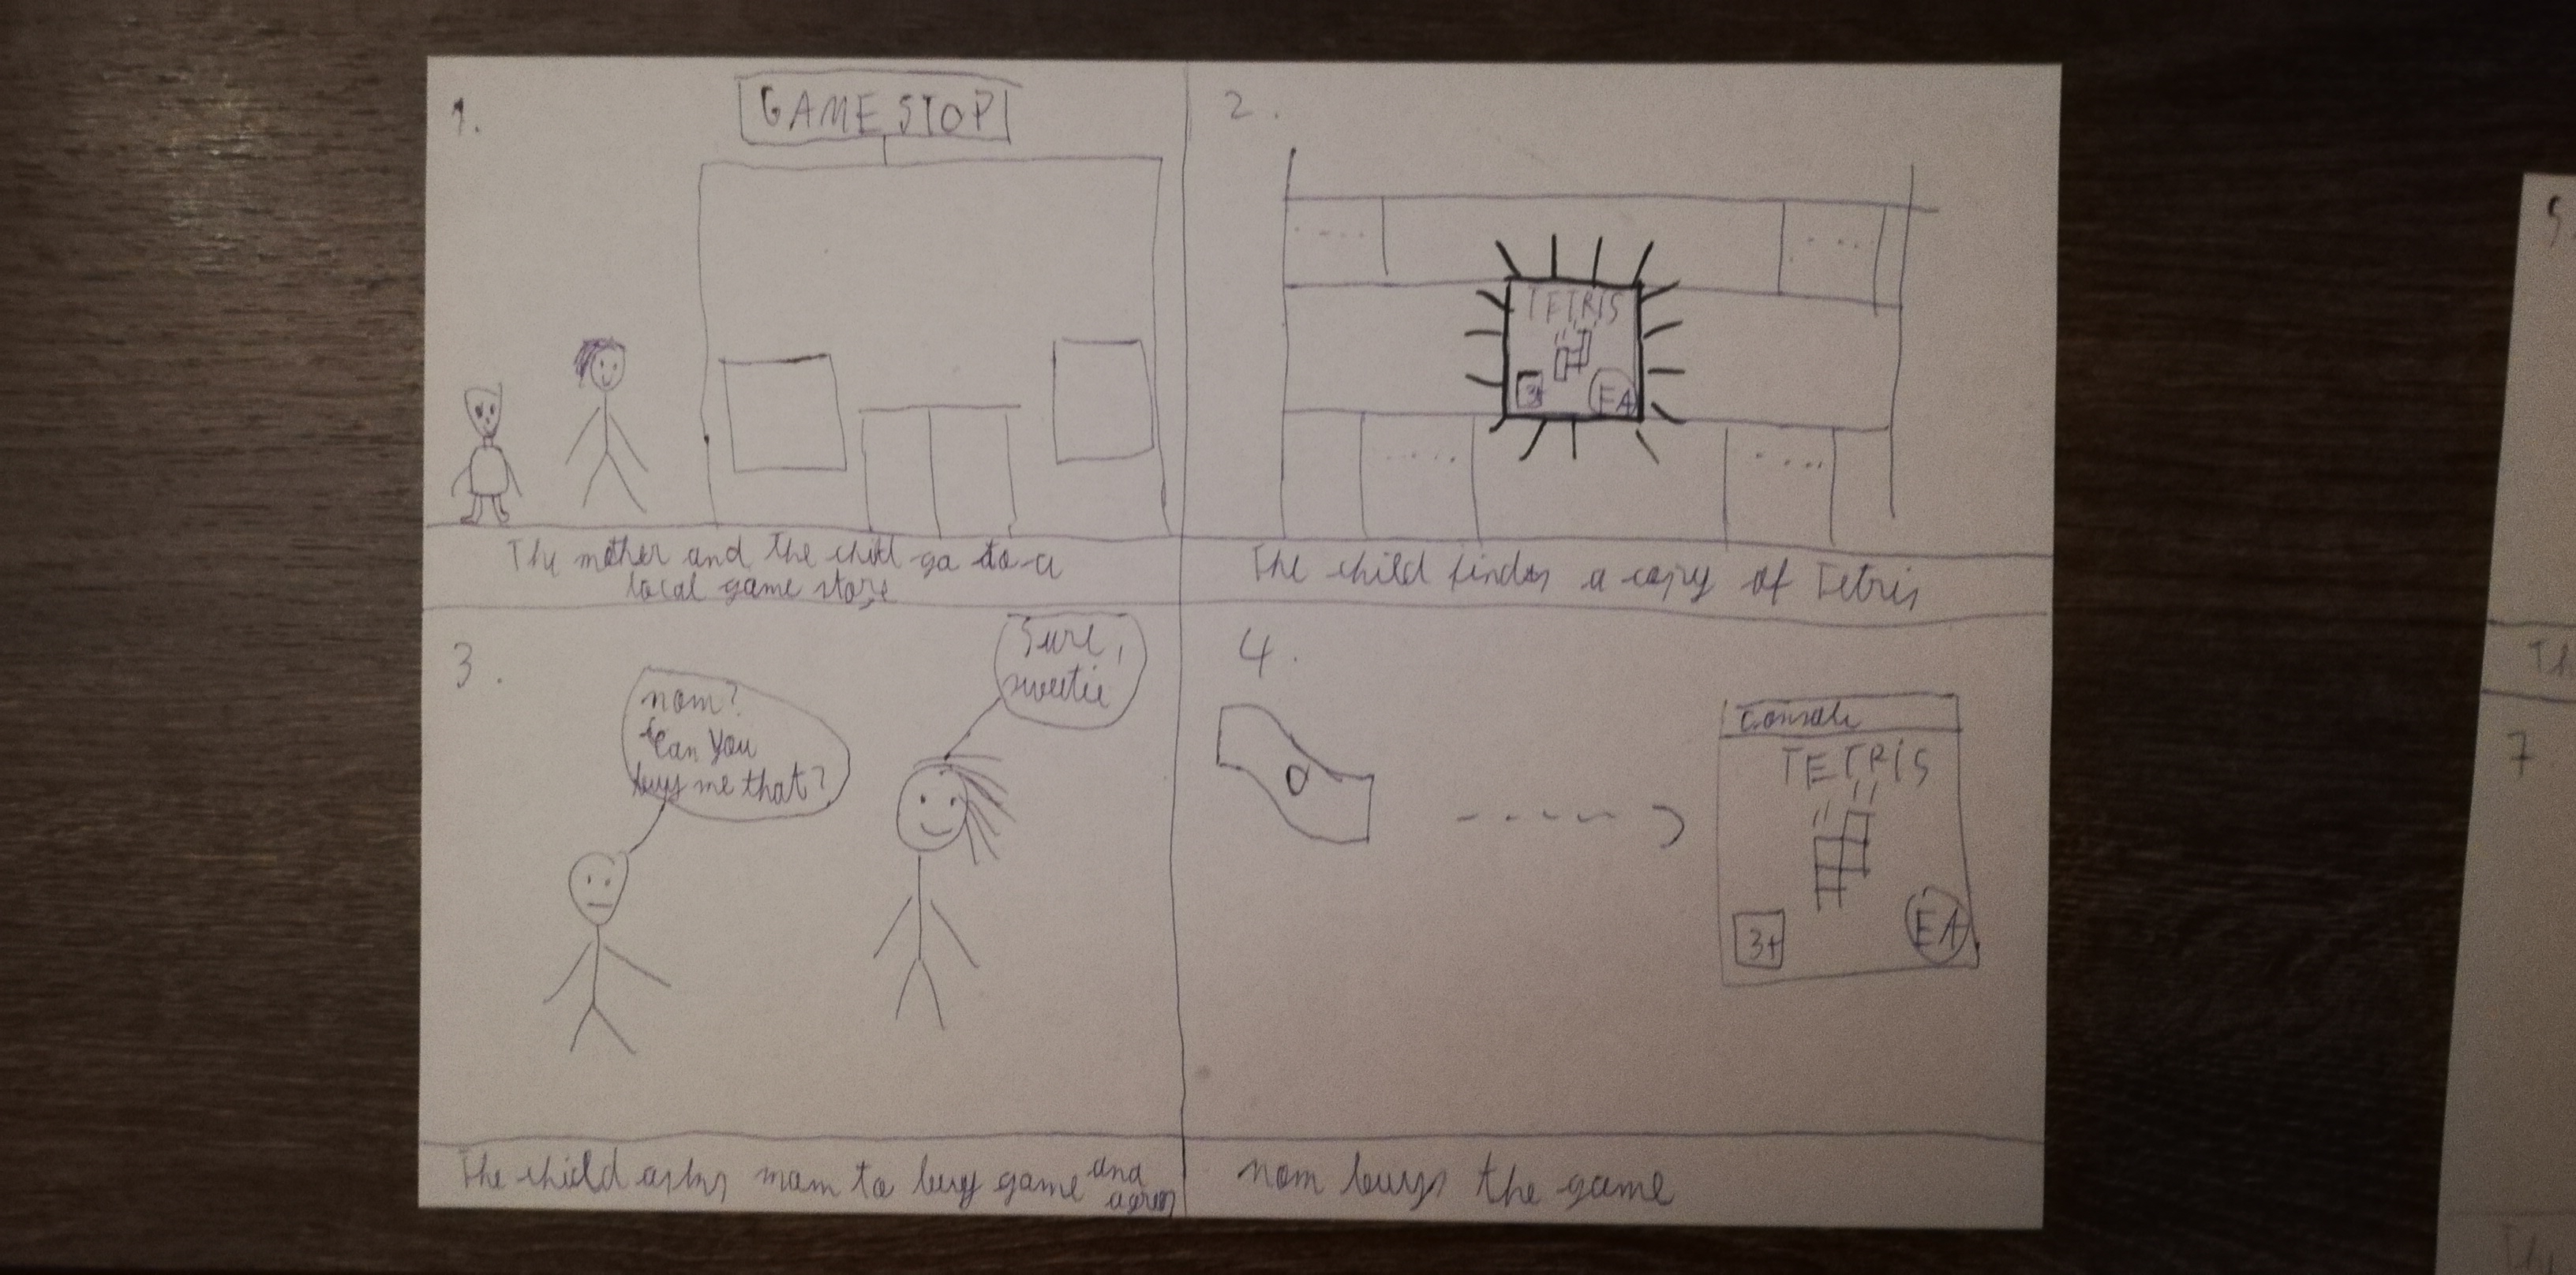 1.
GAME STOP
The mother and the child go to a
local game store
2.
TETRIS
3+
EA
The child finds a copy of Tetris
3.
mom?
Can you
buy me that?
Sure,
sweetie
The child asks mom to buy game and
agrees
4.
0
Console
TETRIS
3+
EA
mom buys the game
5.
Th
7
Th